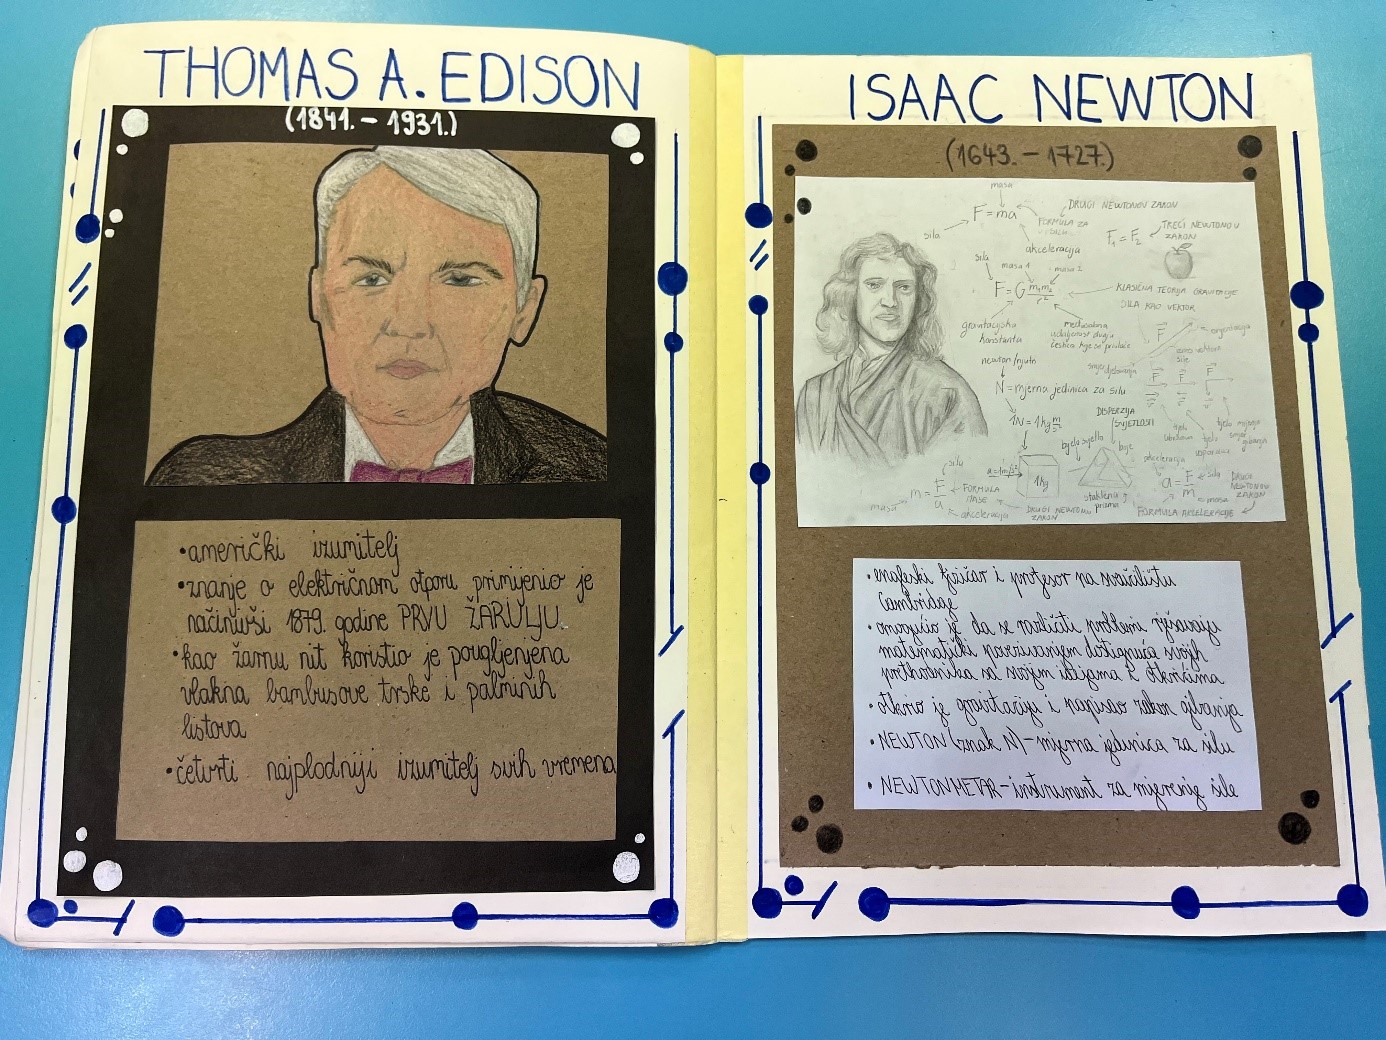 THOMAS A. EDISON
(1841. - 1931.)
• američki izumitelj
• znanje o električnom otporu primijenio je
načinivši 1879. godine PRVU ŽARULJU.
• kao žarnu nit koristio je pougljenjena
vlakna bambusove trske i palminih
listova
• četvrti najplodniji izumitelj svih vremena
ISAAC NEWTON
(1643. - 1727.)
masa
F = ma
DRUGI NEWTONOV ZAKON
FORMULA ZA
sila
akceleracija
F₁ = F₂
TREĆI NEWTONOV
ZAKON
sila
masa 1
masa 2
F = G m₁m₂/r²
KLASIČNA TEORIJA GRAVITACIJE
SILA KAO VEKTOR
gravitacijska
konstanta
međusobna
udaljenost dvaju
newton/njutn
N = mjerna jedinica za silu
1N = 1kg m/s²
DISPERZIJA
SVJETLOSTI
bijelo svjetlo
boje
a = 1m/s²
1kg
staklena
prizma
sila
m = F/a
FORMULA
MASE
masa
akceleracija
DRUGI NEWTONOV
ZAKON
akceleracija
a = F/m
sila
masa
DRUGI
NEWTONOV
ZAKON
FORMULA AKCELERACIJE
• engleski fizičar i profesor na sveučilištu
Cambridge
• omogućio je da se različiti problemi rješavaju
matematički povezivanjem dostignuća svojih
prethodnika sa svojim idejama i otkrićima
• otkrio je gravitaciju i napisao zakon gibanja
• NEWTON (znak N) - mjerna jedinica za silu
• NEWTONMETAR - instrument za mjerenje sile